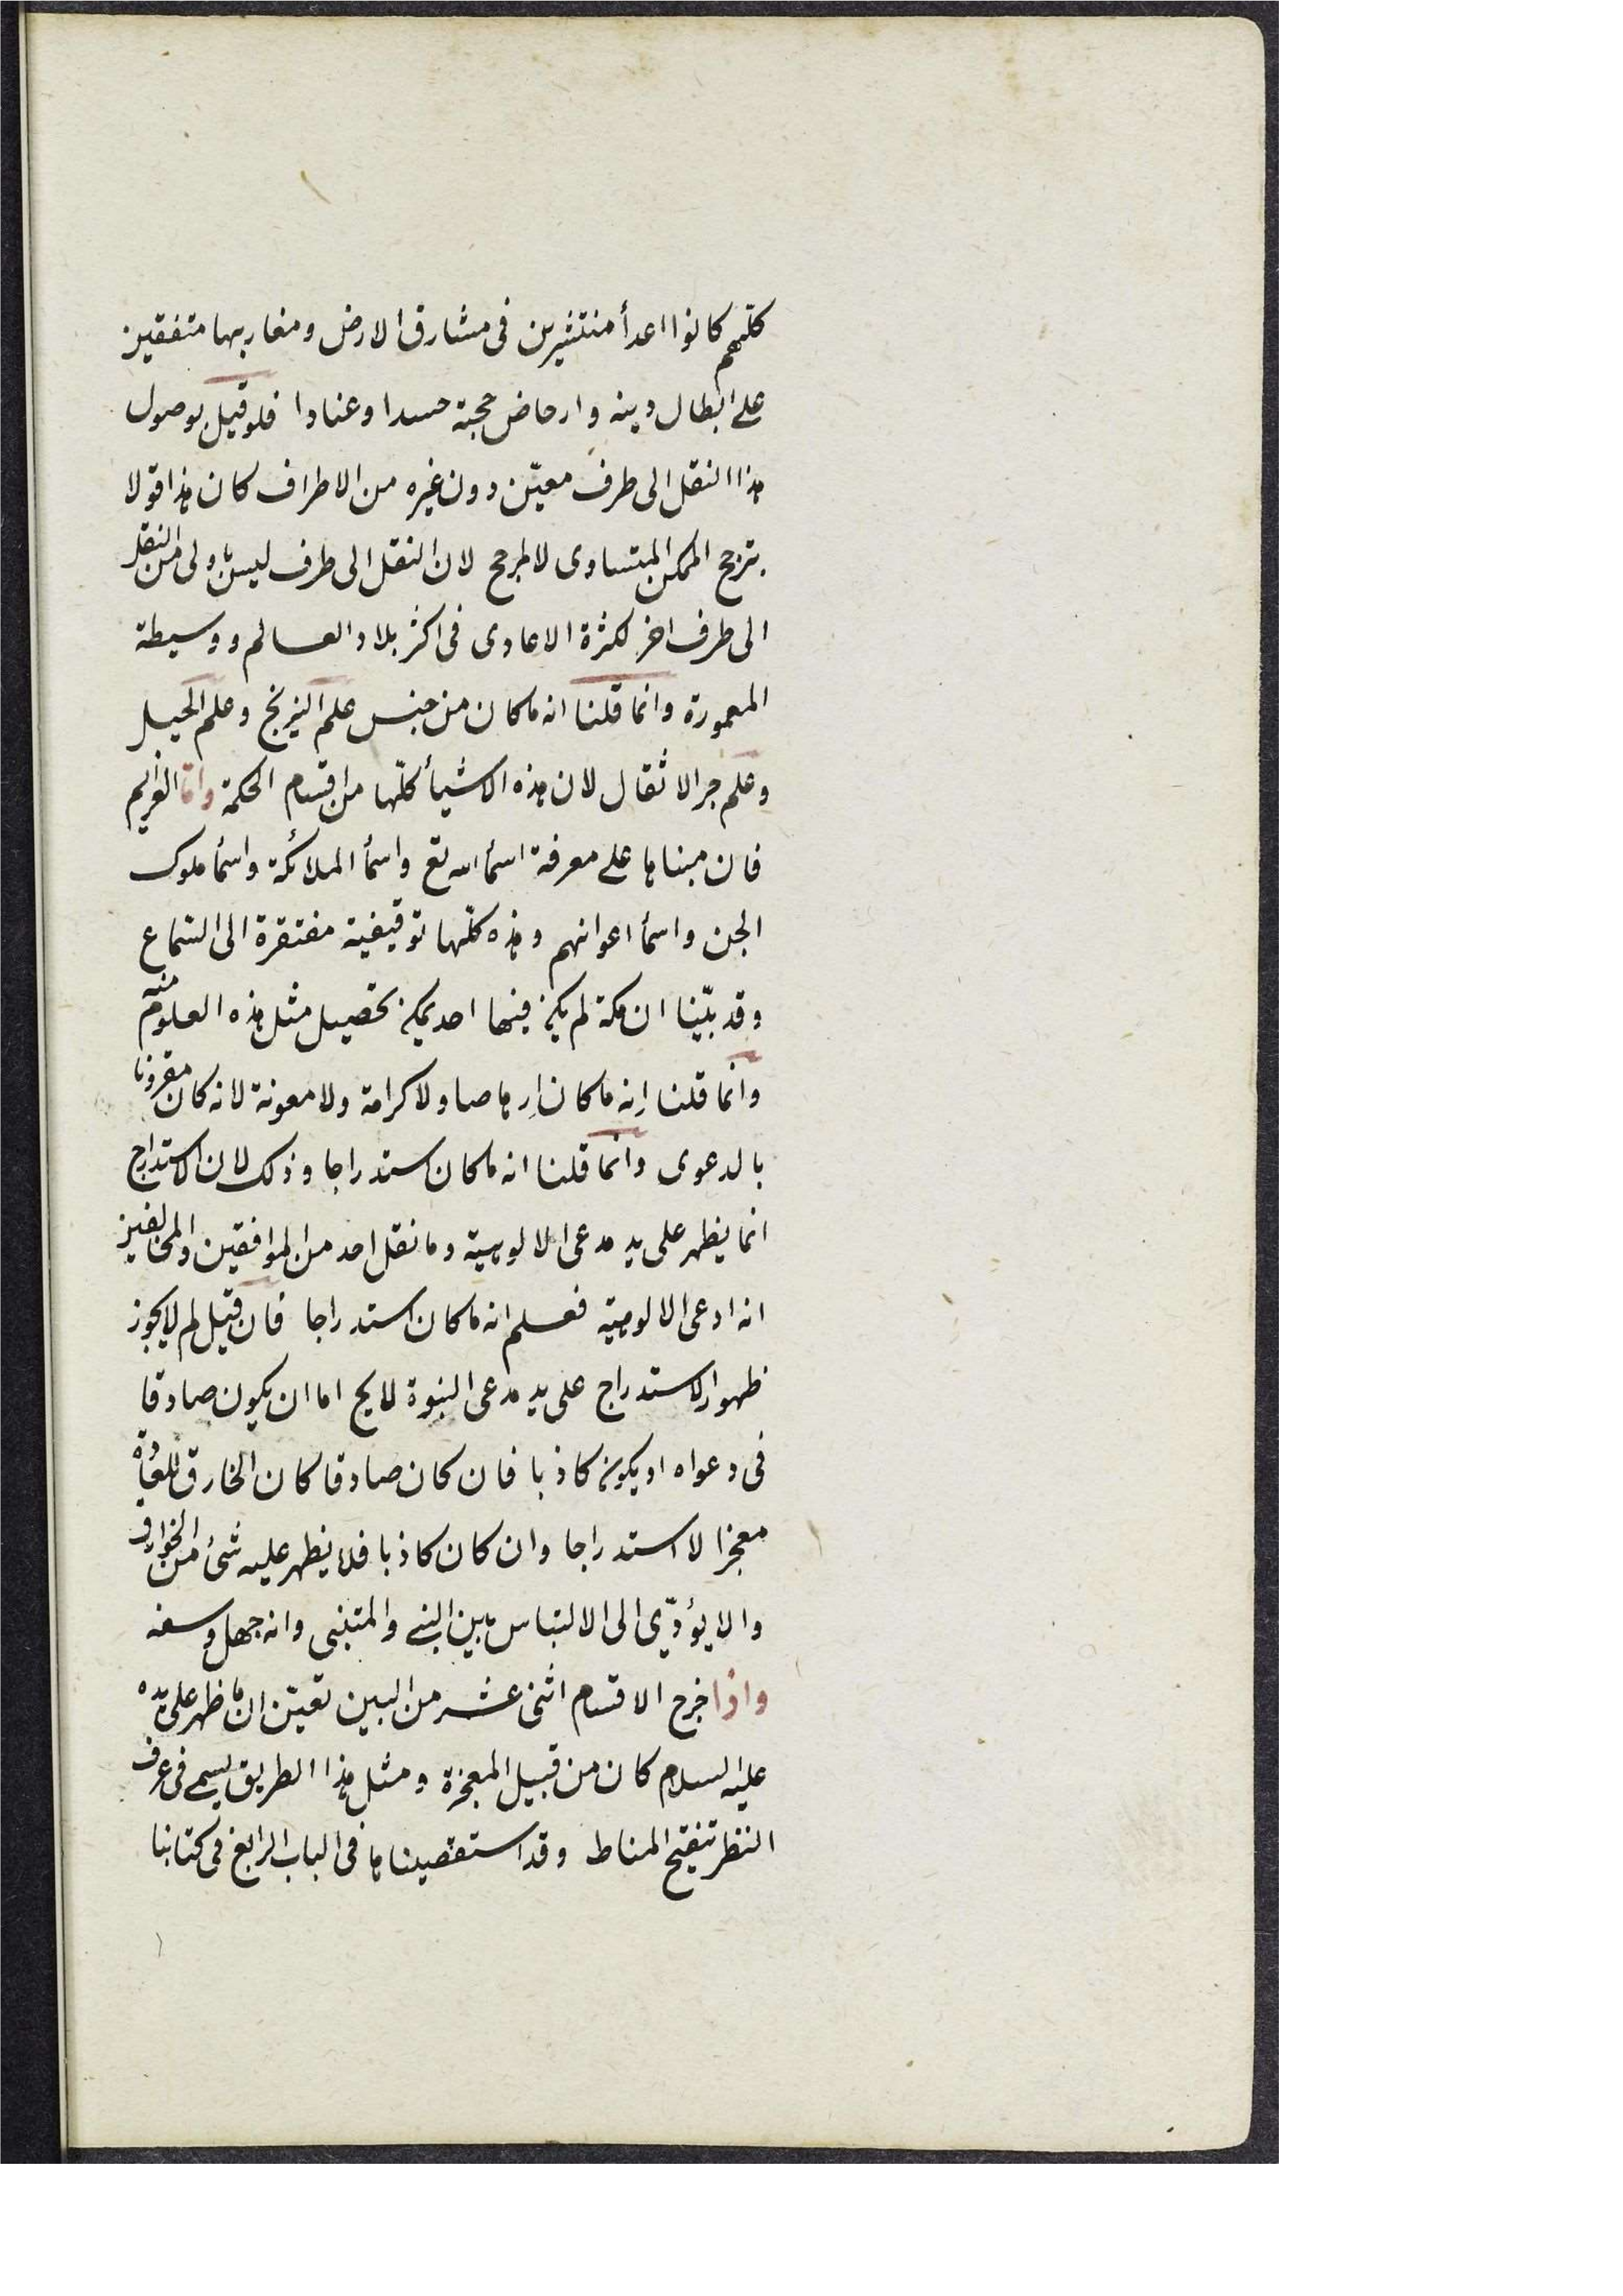 كلّهم كانوا اعدأ منتشرين فى مشارق الارض ومغاربها متفقين
على ابطال دينه وارحاض حجته حسدا وعنادا فلو قيل بوصول
هذا النقل الى طرف معيّن دون غيره من الاطراف كان هذا قولا
بترجح الممكن المتساوى لا لمرجح لان النقل الى طرف ليس باولى من النقل
الى طرف اخر لكثرة الاعادى فى اكثر بلاد العالم ووسيطة
المعمورة وانما قلنا انه ما كان من جنس علم النيرنج وعلم الحيل
وعلم جر الاثقال لان هذه الاشيأ كلّها من اقسام الحكمة وامّا العزايم
فان مبناها على معرفة اسمأ الله تع واسمأ الملائكة واسمأ ملوك
الجن واسمأ اعوانهم وهذه كلّها توقيفية مفتقرة الى السّماع
وقد بيّنا ان مكة لم يكن فيها احد يمكن تحصيل مثل هذه العلوم منه
وانما قلنا إنه ما كان إرهاصا ولا كرامة ولا معونة لانه كان مقرونا
بالدعوى وانما قلنا انه ما كان استدراجا وذلك لان الاستدراج
انما يظهر على يد مدعى الالوهية وما نقل احد من الموافقين والمخالفين
انه ادعى الالوهية فعلم انه ما كان استدراجا فان قيل لم لا يجوز
ظهور الاستدراج على يد مدعى النبوة لا يح اما ان يكون صادقا
فى دعواه او يكون كاذبا فان كان صادقا كان الخارق للعادة
معجزا لا استدراجا وان كان كاذبا فلا يظهر عليه شئ من الخوارق
والا يؤدّى الى الالتباس بين النبى والمتنبى وانه جهل وسفه
واذا خرج الاقسام اثنى عشر من البين تعيّن ان ما ظهر على يده
عليه السلام كان من قبيل المعجزة ومثل هذا الطريق يسمى فى عرف
النظر تنقيح المناط وقد استقصيناها فى الباب الرابع فى كتابنا